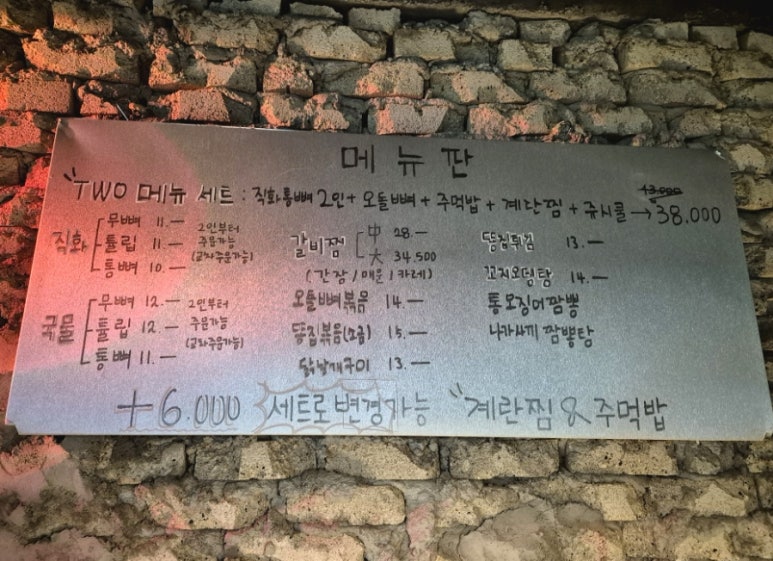 메뉴판
"TWO 메뉴 세트 : 직화통뼈 2인 + 오돌뼈 + 주먹밥 + 계란찜 + 쥬시쿨 → 43.000 38.000
직화
무뼈 11.—
튤립 11.—
통뼈 10.—
2인부터
주문가능
(교차주문가능)
국물
무뼈 12.—
튤립 12.—
통뼈 11.—
2인부터
주문가능
(교차주문가능)
갈비찜
中 28.—
大 34.500
(간장 / 매운 / 카레)
오돌뼈볶음 14.—
똥집볶음(소금) 15.—
닭날개구이 13.—
똥집튀김 13.—
꼬치오뎅탕 14.—
통오징어짬뽕
나가사끼 짬뽕탕
+6.000 세트로 변경가능 "계란찜 & 주먹밥